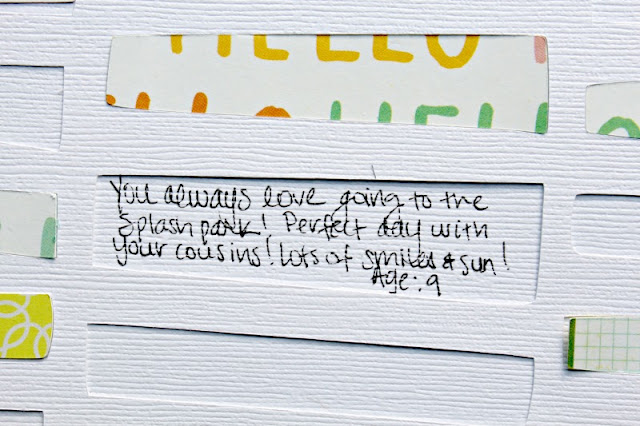 HELLO
HELL
You always love going to the
Splash park! Perfect day with
your cousins! lots of smiles & sun!
Age: 9